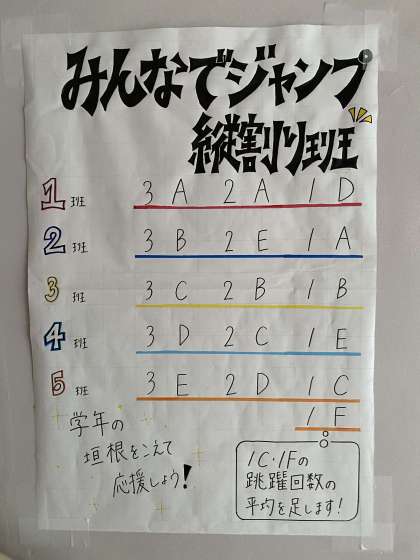 みんなでジャンプ
縦割り班
1班 3A 2A 1D
2班 3B 2E 1A
3班 3C 2B 1B
4班 3D 2C 1E
5班 3E 2D 1C
1F
学年の
垣根をこえて
応援しよう!
1C・1Fの
跳躍回数の
平均を足します!